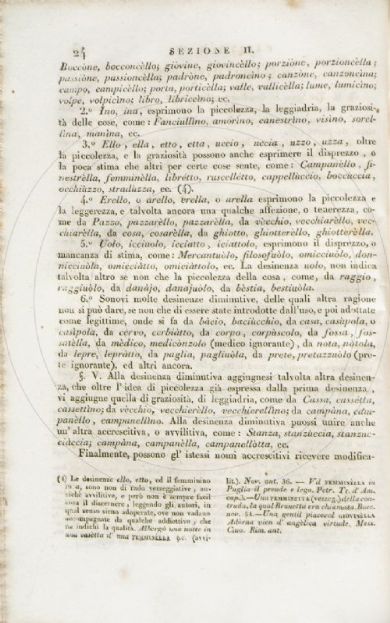 24 SEZIONE II.
Boccóne, bocconcèllo; gióvine, giovincèllo; porzióne, porzioncèlla;
passióne, passioncèlla; padróne, padroncino; canzóne, canzoncina;
campo, campicèllo; porta, porticèlla; valle, vallicèlla; lume, lumicino;
volpe, volpicino; libro, libriccino; ec.
2.º Ino, ina, esprimono la piccolezza, la leggiadria, la graziosi-
tà delle cose, come: Fanciullino, amorino, canestrino, visino, sorel-
lina, manina, ec.
3.º Ello, ella, etto, etta, uccio, uccia, uzzo, uzza, oltre
la piccolezza, e la graziosità possono anche esprimere il disprezzo, o
la poca stima che altri per certe cose sente, come: Campanièllo, fi-
nestrèlla, femminèlla, librétto, ruscellétto, cappellùccio, boccuccia,
occhiùzzo, stradùzza, ec. (4).
4.º Erello, o arello, erella, o arella esprimono la piccolezza e
la leggerezza, e talvolta ancora una qualche affezione, o tenerezza, co-
me da Pazzo, pazzarèllo, pazzarèlla, da vècchio, vecchiarèllo, vec-
chiarèlla, da cosa, cosarèlla, da ghiotto, ghiotterello, ghiotterèlla.
5.º Uolo, icciuolo, icciatto, iciattolo, esprimono il disprezzo, o
mancanza di stima, come: Mercantuòlo, filosofuòlo, omicciuòlo, don-
nicciuòla, omicciàtto, omiciàttolo, ec. La desinenza uolo, non indica
talvolta altro se non che la piccolezza della cosa, come, da raggio,
raggiuòlo, da danàjo, danajuòlo, da bèstia, bestiuòla.
6.º Sonovi molte desinenze diminutive, delle quali altra ragione
non si può dare, se non che di essere state introdotte dall'uso, e poi adottate
come legittime, onde si fa da bàcio, baciùcchio, da casa, casùpola, o
casipola, da cérvo, cerbiàtto, da corpo, corpàscolo, da fossa, fos-
satèlla, da mèdico, medicònzolo (medico ignorante), da nota, nòtola,
da lepre, lepràtto, da paglia, pagliuòla, da prete, pretazzuòlo (pre-
te ignorante), ed altri ancora.
§. V. Alla desinenza diminutiva aggiugnesi talvolta altra desinen-
za, che oltre l'idea di piccolezza già espressa dalla prima desinenza,
vi aggiugne quella di graziosità, di leggiadria, come da Cassa, cassétta,
cassettino; da vècchio, vecchierèllo, vecchierellino; da campàna, cam-
panèllo, campanellino. Alla desinenza diminutiva puossi unire anche
un'altra accrescitiva, o avvilitiva, come: Stanza, stanzùccia, stanzuc-
ciàccia; campàna, campanèlla, campanellòtta, ec.
Finalmente, possono gl'istessi nomi accrescitivi ricevere modifica-
(4) Le desinenze ello, etto, ed il femminino
in a, sono non di rado vezzeggiative, an-
zichè avvilitive, e però non è sempre facil
cosa il discernere, leggendo gli autori, in
qual senso sieno adoperate, ove non vadano
accompagnate da qualche addiettivo, che
ne indichi la qualità. Albergò una notte in
casetta d'una FEMMINELLA g.c. (avvi-
lit.) Nov. ant. 36. — Va FEMMINELLA in
Puglia il prende e lega. Petr. Tr. d'Am.
cap. 3. — Una FEMMINETTA (vezzeg.) della con-
trada, la qual Brunetta era chiamata. Bocc.
nov. 51. — Una gentil piacevol GIOVINELLA
Adorna vien d'angelica virtude. Mess.
Cino. Rim. ant.